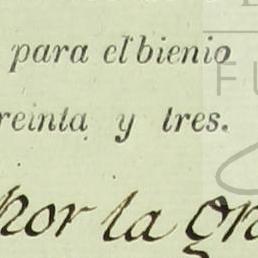 para el bienio
reinta y tres.
Por la